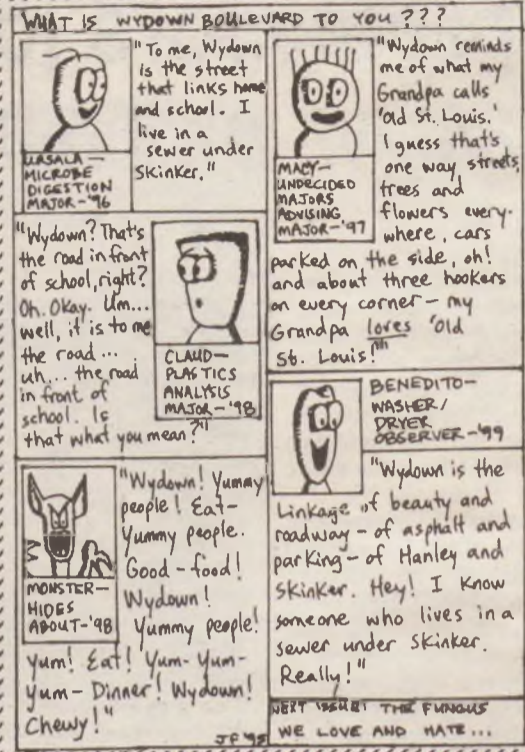 WHAT IS WYDOWN BOULEVARD TO YOU ???
"To me, Wydown
is the street
that links home
and school. I
live in a
sewer under
Skinker."
URSALA—
MICROBE
DIGESTION
MAJOR-'96
"Wydown reminds
me of what my
Grandpa calls
'old St. Louis.'
I guess that's
one way streets,
trees and
flowers every-
where, cars
parked on the side, oh!
and about three hookers
on every corner — my
Grandpa loves 'old
St. Louis!'"
MACY—
UNDECIDED
MAJORS
ADVISING
MAJOR-'97
"Wydown? That's
the road in front
of school, right?
Oh. Okay. Um...
well, it is to me
the road...
uh... the road
in front of
school. Is
that what you mean?"
CLAUD—
PLASTICS
ANALYSIS
MAJOR-'98
BENEDITO—
WASHER/
DRYER
OBSERVER-'99
"Wydown is the
Linkage of beauty and
roadway — of asphalt and
parking — of Hanley and
Skinker. Hey! I know
someone who lives in a
sewer under Skinker.
Really!"
"Wydown! Yummy
people! Eat—
Yummy people.
Good — food!
Wydown!
Yummy people!
Yum! Eat! Yum-Yum-
Yum — Dinner! Wydown!
Chewy!"
MONSTER—
HIDES
ABOUT-'98
JF '95
NEXT ISSUE: THE FUNGUS
WE LOVE AND HATE...